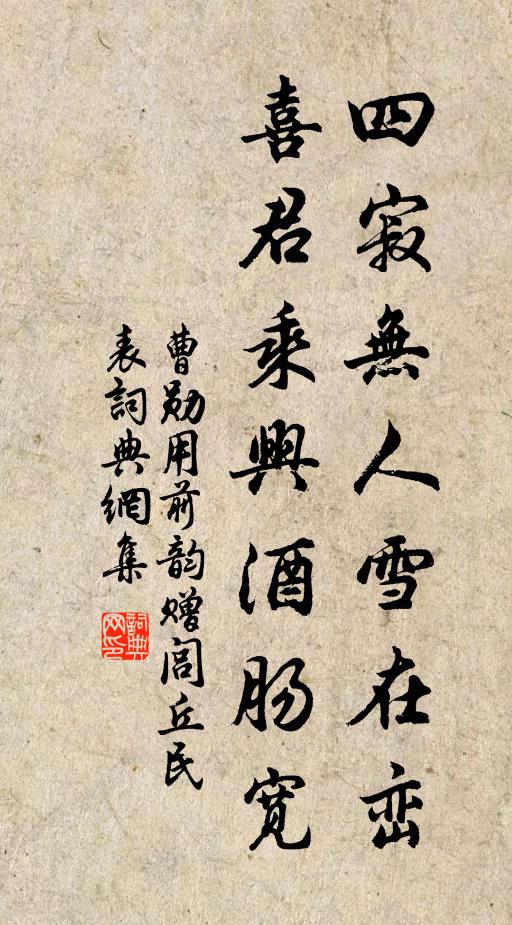 四寂無人雪在峦
喜君乘興酒肠寬
曹勛用前韵赠闾丘民
表詞典網集
詞典网印